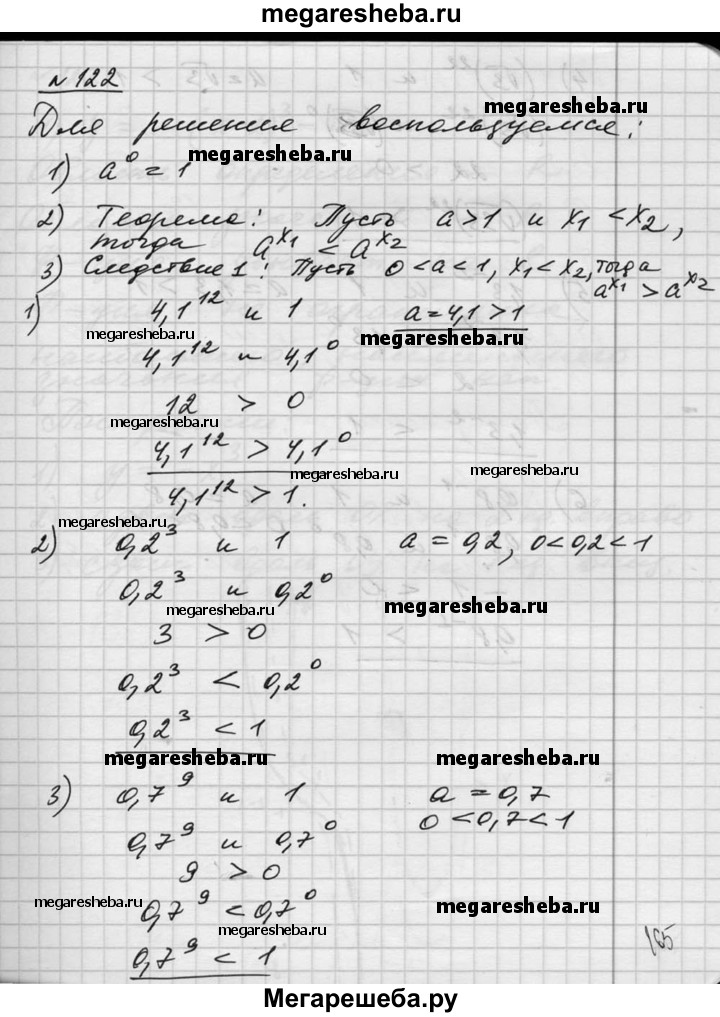 megaresheba.ru
№122
Для решения воспользуемся:
megaresheba.ru
megaresheba.ru
1) a⁰ = 1
2) Теорема: Пусть a>1 и x₁ < x₂,
тогда a^x₁ < a^x₂
3) Следствие 1: Пусть 0<a<1, x₁<x₂, тогда
a^x₁ > a^x₂
1) 4,1¹² и 1 a=4,1>1
megaresheba.ru
megaresheba.ru
4,1¹² и 4,1⁰
12 > 0
megaresheba.ru
4,1¹² > 4,1⁰
megaresheba.ru
megaresheba.ru
4,1¹² > 1.
megaresheba.ru
2) 0,2³ и 1 a = 0,2, 0<0,2<1
0,2³ и 0,2⁰
megaresheba.ru
megaresheba.ru
3 > 0
0,2³ < 0,2⁰
0,2³ < 1
megaresheba.ru
megaresheba.ru
3) 0,7⁹ и 1 a = 0,7
0<0,7<1
0,7⁹ и 0,7⁰
9 > 0
megaresheba.ru
megaresheba.ru
0,7⁹ < 0,7⁰
megaresheba.ru
0,7⁹ < 1
165
Мегарешеба.ру